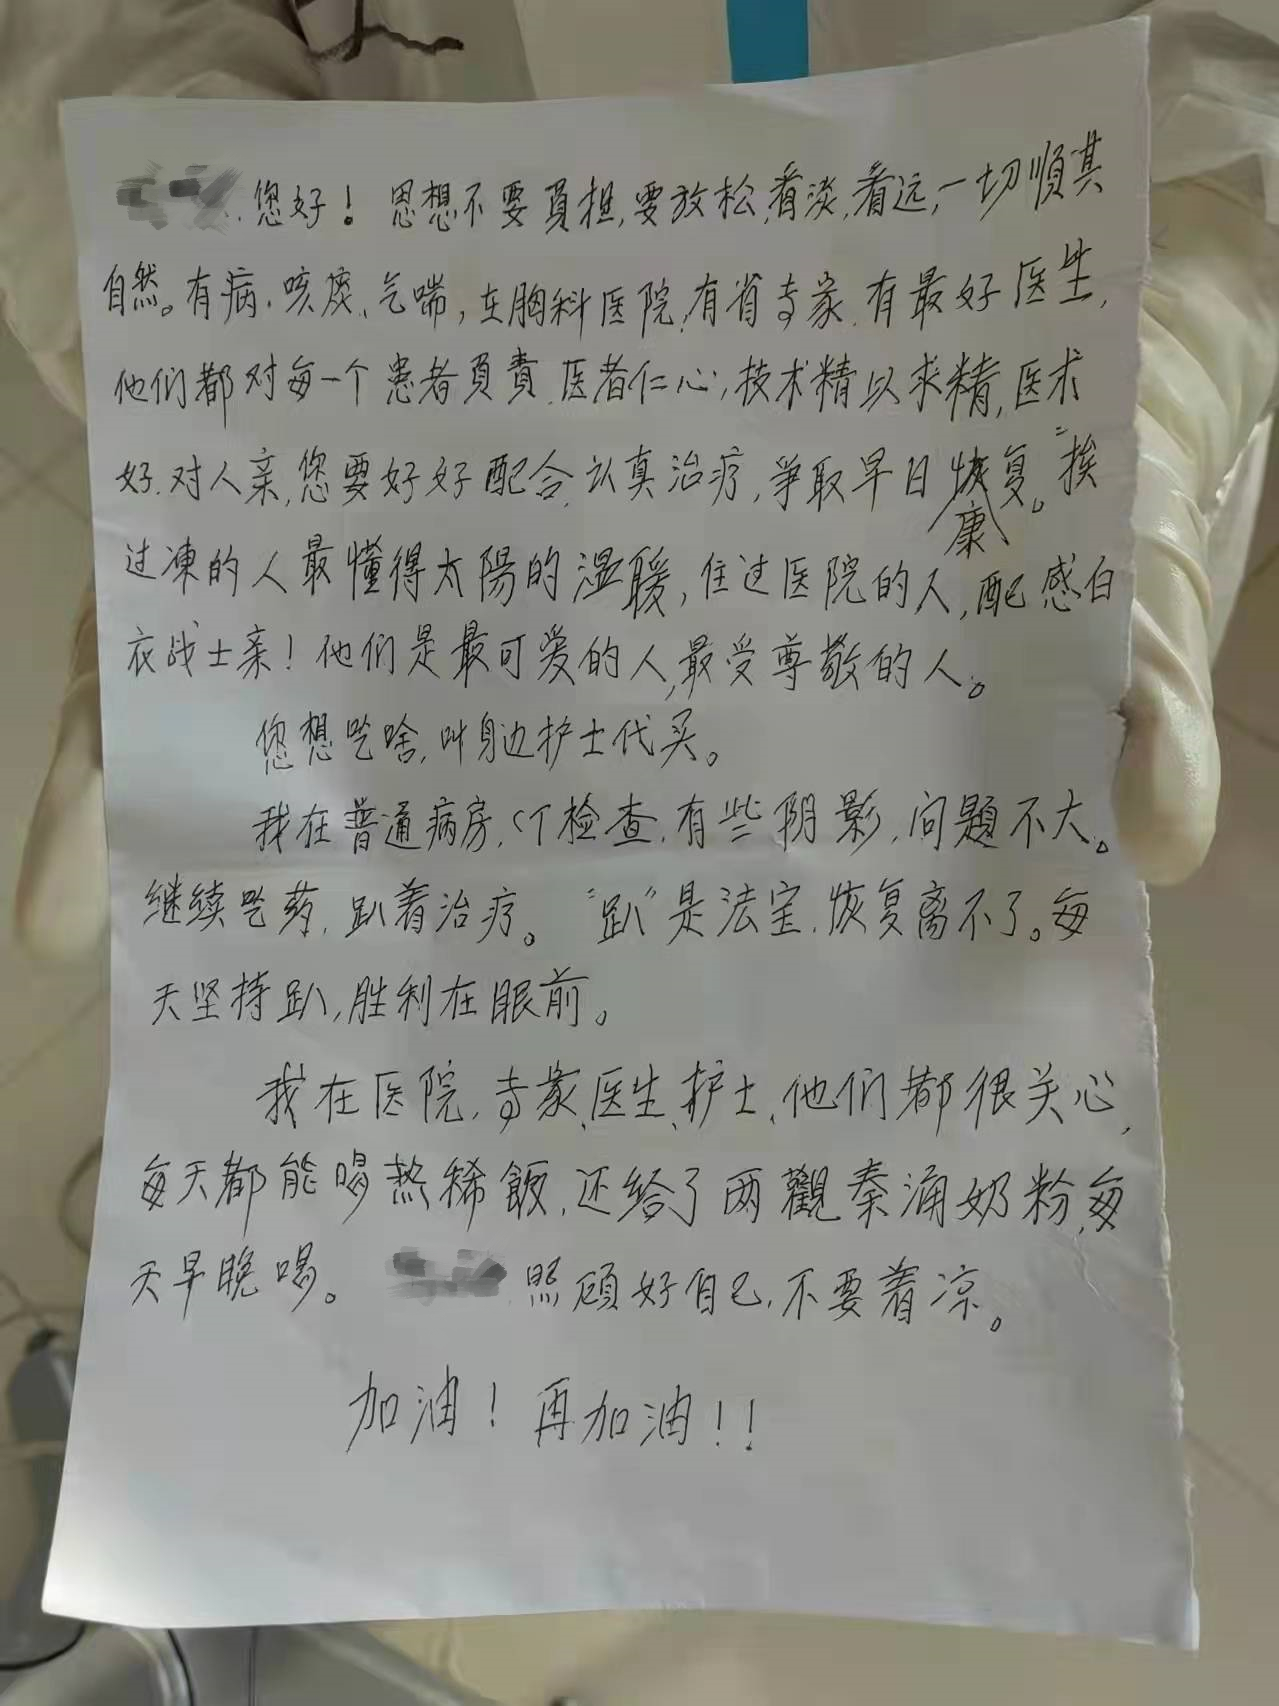 您好！思想不要負担,要放松,看淡,看远,一切順其
自然。有病.咳痰、气喘,在胸科医院,有省专家.有最好医生,
他们都对每一个患者負責.医者仁心,技术精以求精,医术
好.对人亲,您要好好配合.认真治疗,争取早日恢复。"挨
康
过凍的人最懂得太陽的温暖,住过医院的人,配感白
衣战士亲!他们是最可爱的人,最受尊敬的人。
您想吃啥,叫身边护士代买。
我在普通病房,CT检查.有些阴影,问題不大。
继续吃药,趴着治疗。"趴"是法宝.恢复离不了。每
天坚持趴,胜利在眼前。
我在医院,专家、医生、护士、他们都很关心,
每天都能喝热稀飯.还给了两觀秦涌奶粉,每
天早晚喝。 照顾好自己.不要着凉。
加油!再加油!!